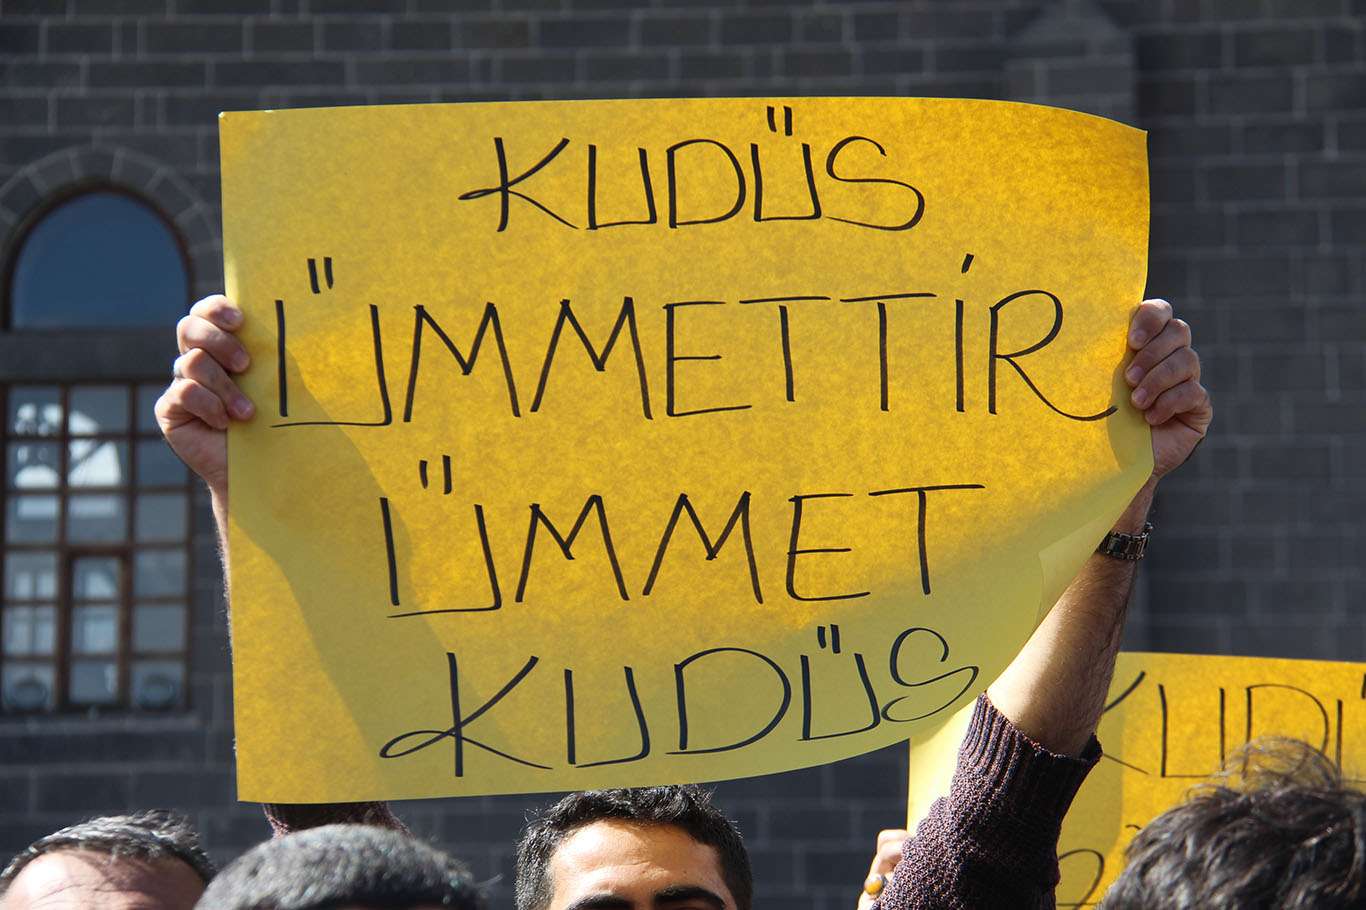 KUDÜS
ÜMMETTİR
ÜMMET
KUDÜS